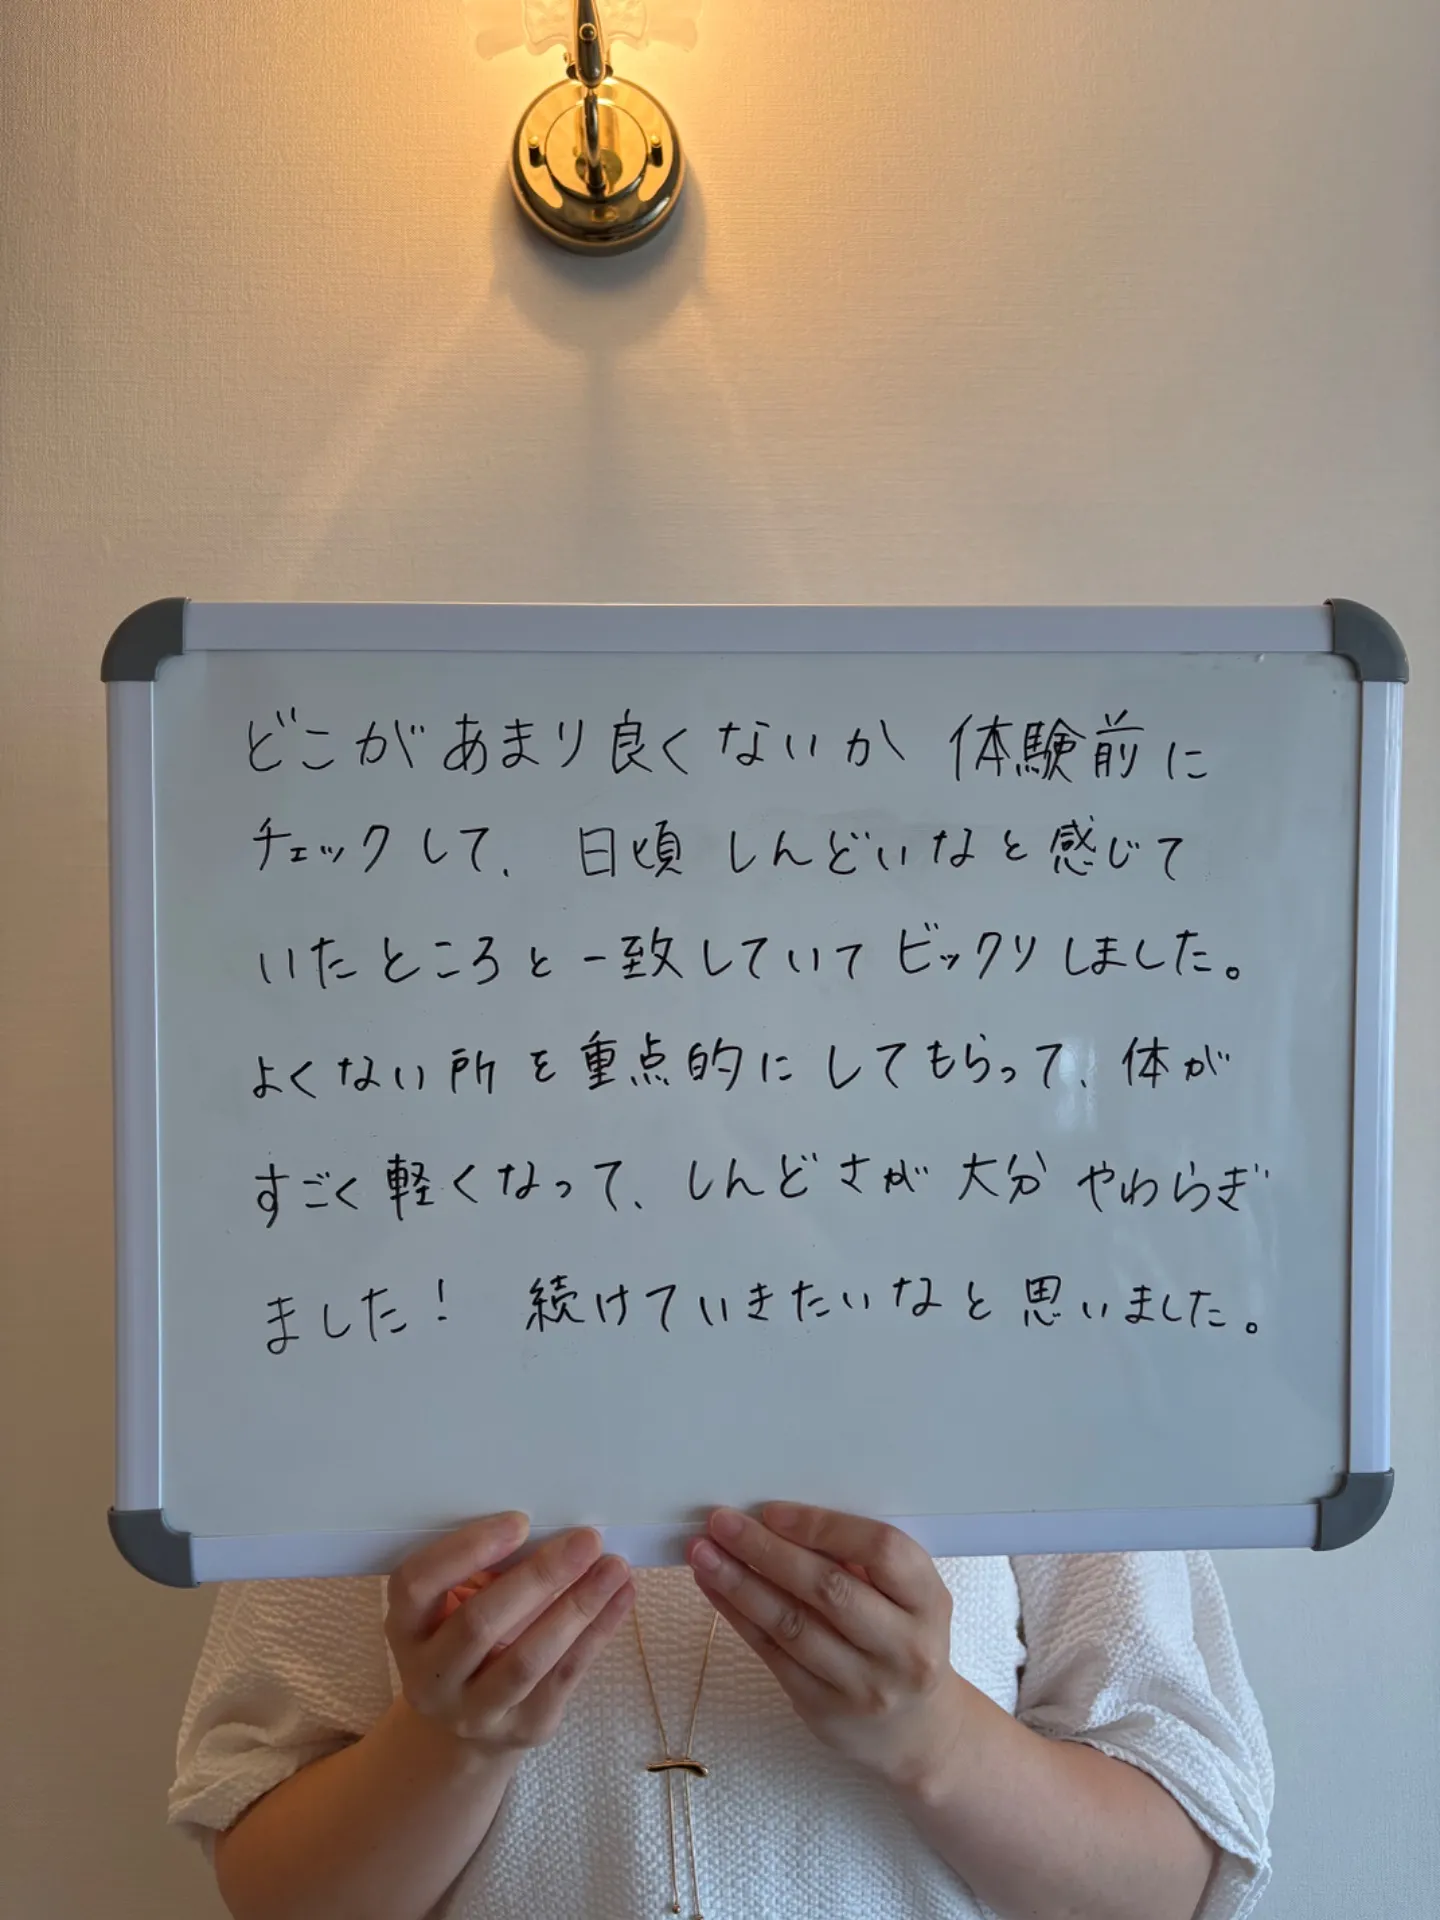 どこがあまり良くないか 体験前に
チェックして、日頃 しんどいなと感じて
いたところと一致していてビックリしました。
よくない所を重点的にしてもらって、体が
すごく軽くなって、しんどさが 大分 やわらぎ
ました！ 続けていきたいなと思いました。